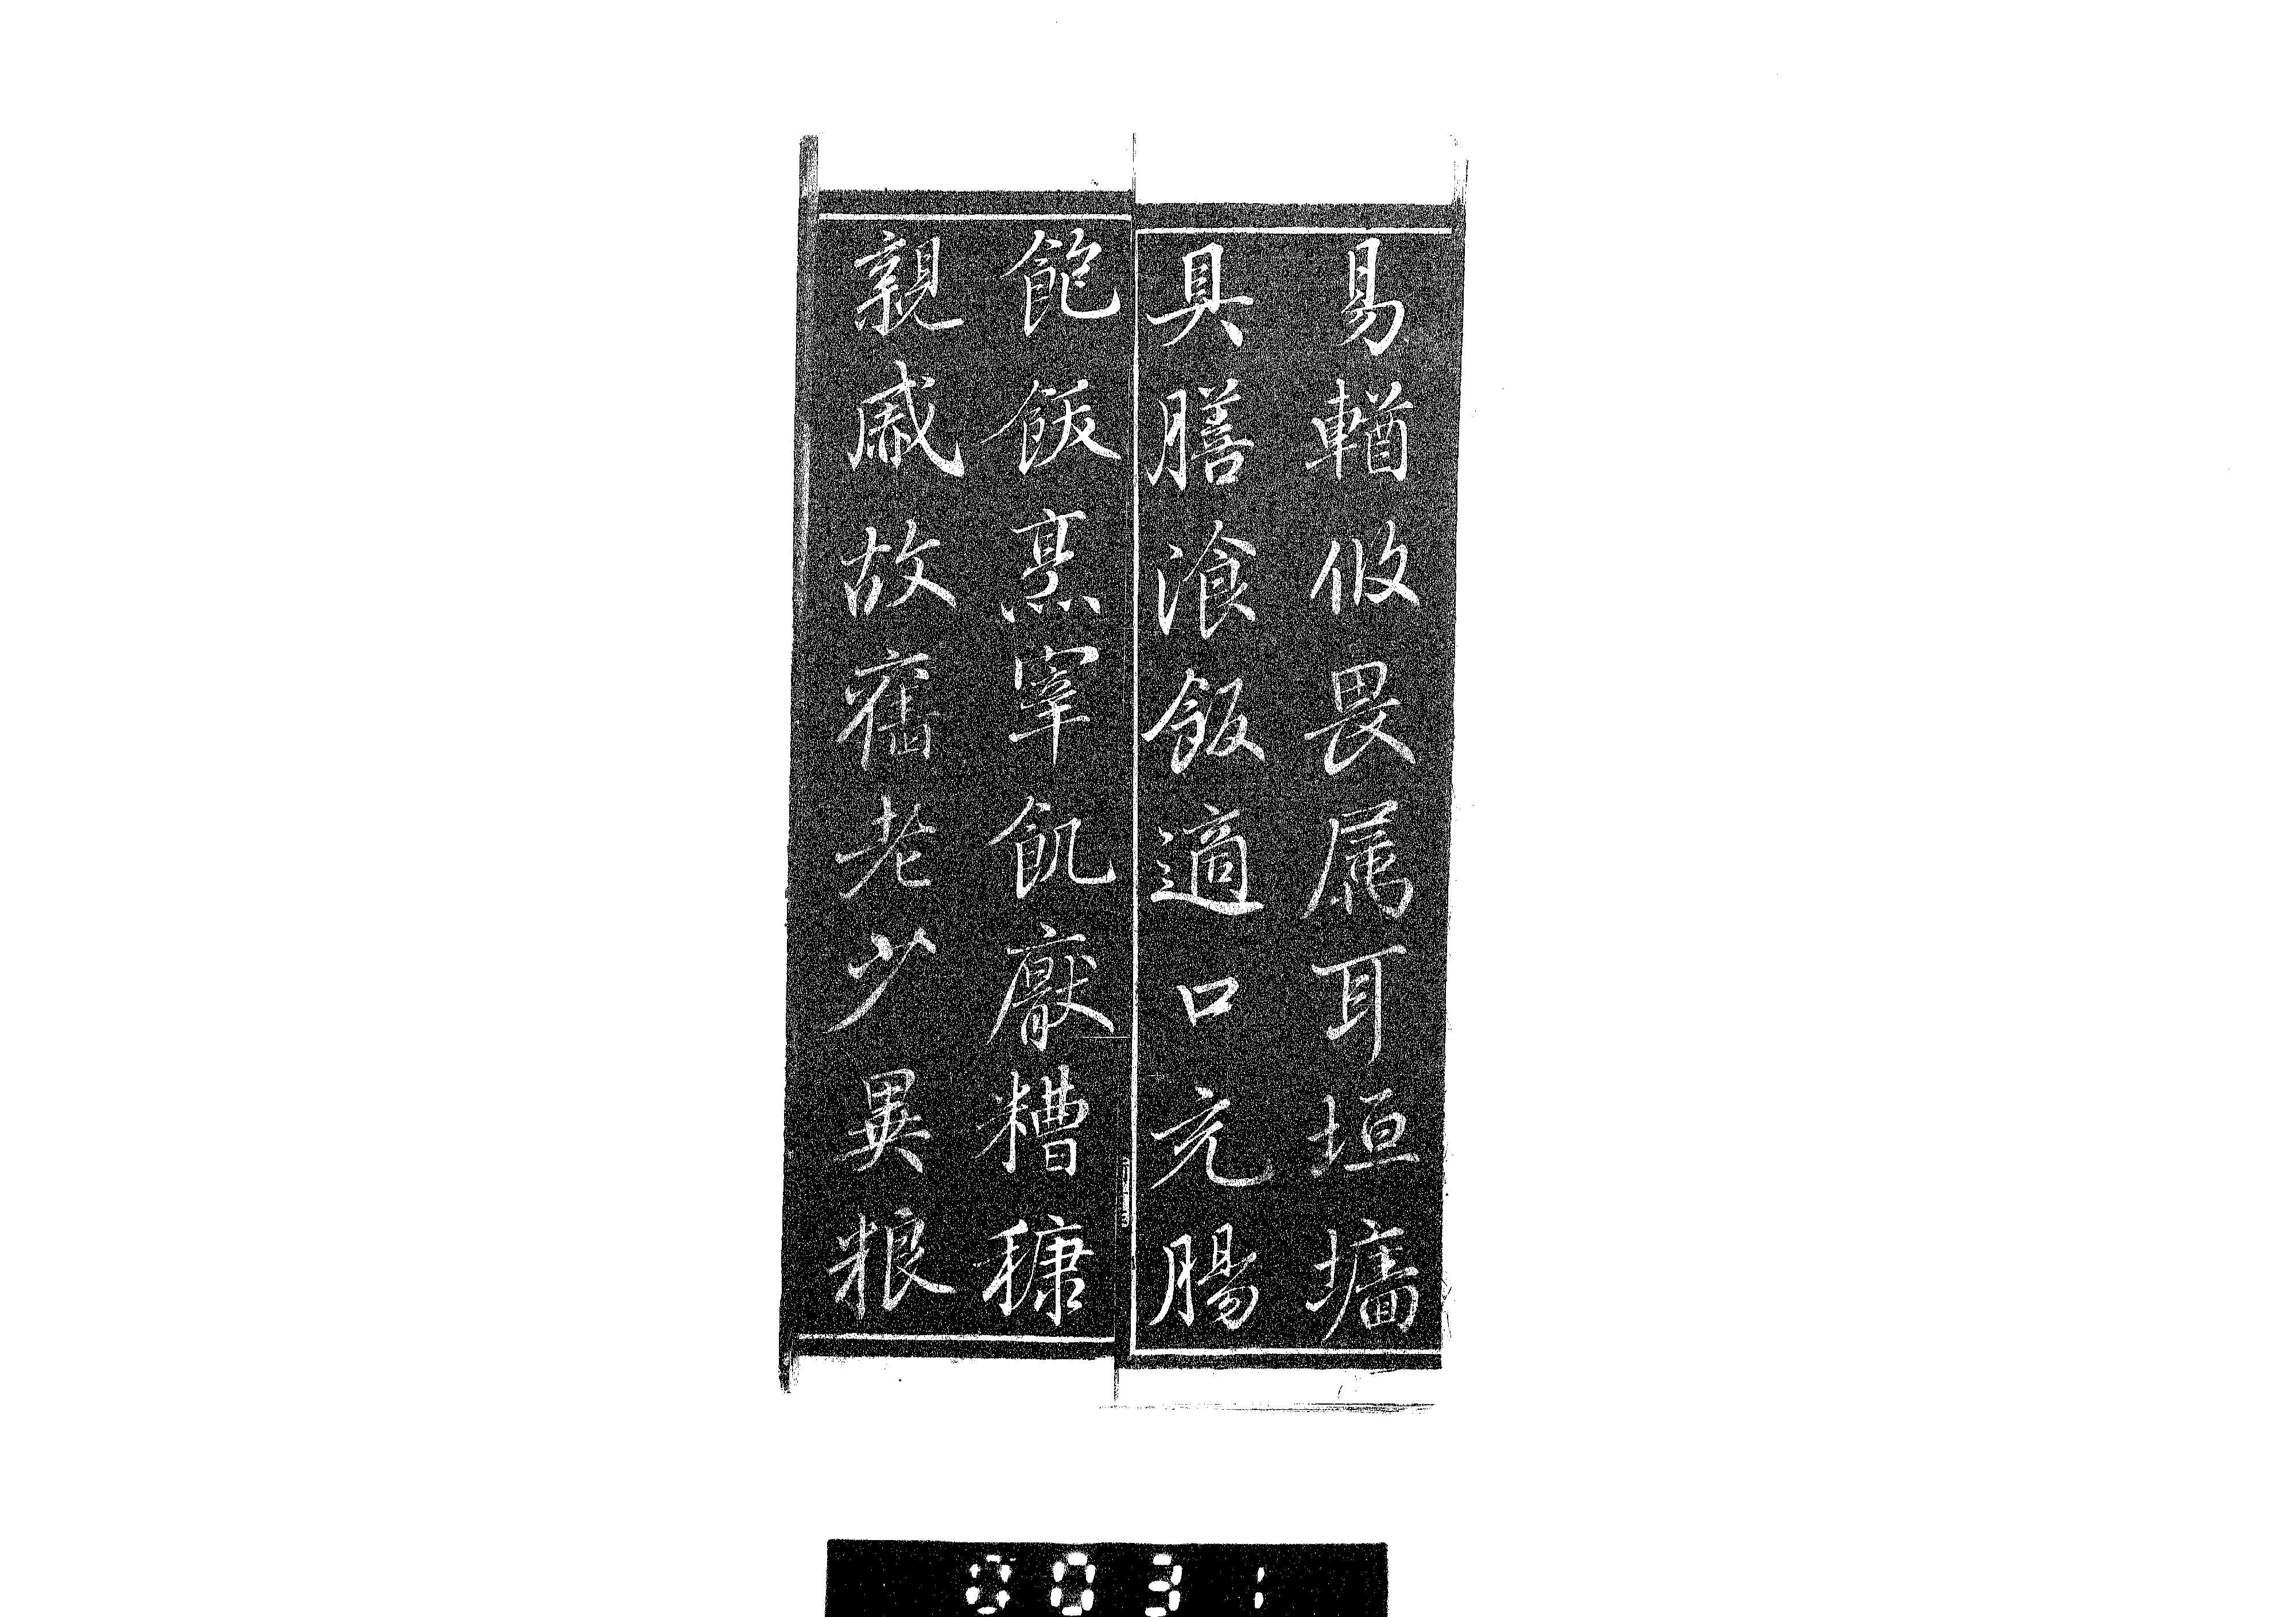 易輶攸畏属耳垣墻
具膳飡飯適口充腸
飽飫烹宰飢厭糟糠
親戚故舊老少異粮
0031